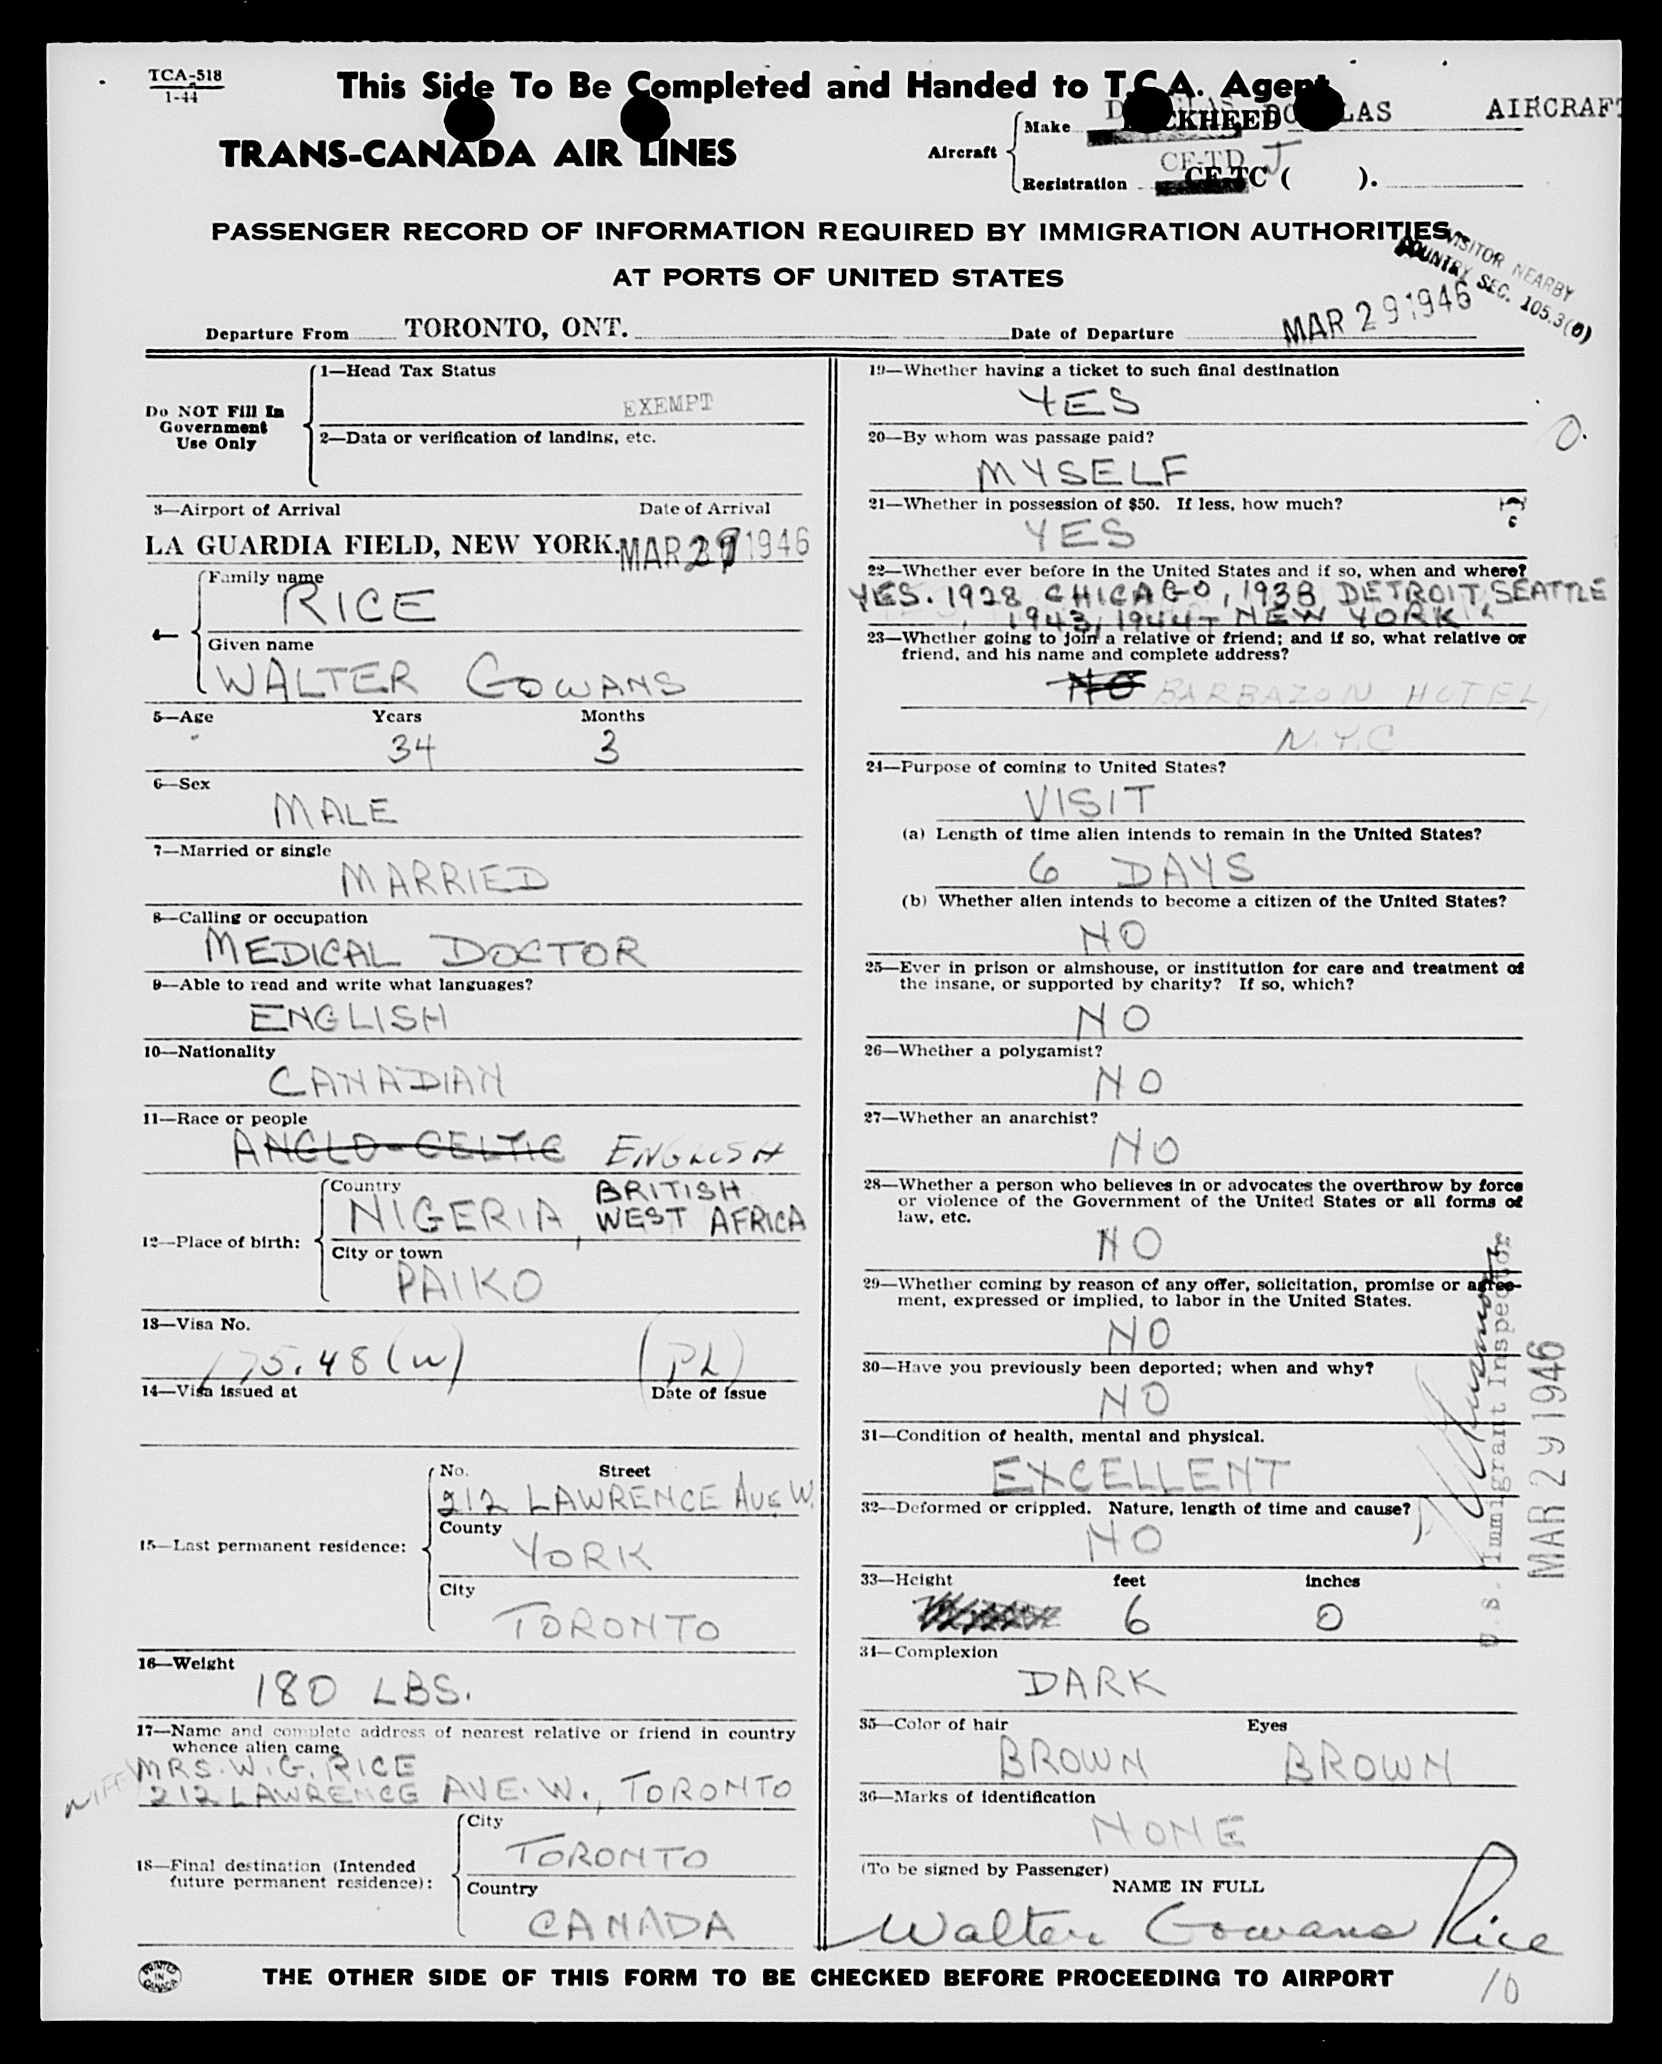 TCA-518
1-44
This Side To Be Completed and Handed to T.C.A. Agent
TRANS-CANADA AIR LINES
Aircraft
Make DOUGLAS LOCKHEED DOUGLAS AIRCRAFT
Registration CF-TD J CF-TC ( ).
PASSENGER RECORD OF INFORMATION REQUIRED BY IMMIGRATION AUTHORITIES
AT PORTS OF UNITED STATES
VISITOR NEARBY
COUNTRY SEC. 105.3(0)
Departure From TORONTO, ONT. Date of Departure MAR 29 1946
Do NOT Fill In
Government
Use Only
1—Head Tax Status
EXEMPT
2—Data or verification of landing, etc.
3—Airport of Arrival Date of Arrival
LA GUARDIA FIELD, NEW YORK. MAR 29 1946
4—
Family name
RICE
Given name
WALTER GOWANS
5—Age Years Months
34 3
6—Sex
MALE
7—Married or single
MARRIED
8—Calling or occupation
MEDICAL DOCTOR
9—Able to read and write what languages?
ENGLISH
10—Nationality
CANADIAN
11—Race or people
ANGLO-CELTIC ENGLISH
12—Place of birth:
Country
NIGERIA, BRITISH
WEST AFRICA
City or town
PAIKO
13—Visa No.
175.48 (w) (PL)
14—Visa issued at Date of issue
15—Last permanent residence:
No. Street
212 LAWRENCE AVE W.
County
YORK
City
TORONTO
16—Weight
180 LBS.
17—Name and complete address of nearest relative or friend in country
whence alien came
MRS. W. G. RICE
WIFE 212 LAWRENCE AVE. W., TORONTO
18—Final destination (Intended
future permanent residence):
City
TORONTO
Country
CANADA
19—Whether having a ticket to such final destination
YES
0.
20—By whom was passage paid?
MYSELF
21—Whether in possession of $50. If less, how much?
YES
22—Whether ever before in the United States and if so, when and where?
YES. 1928 CHICAGO, 1938 DETROIT, SEATTLE
1943, 1944 - NEW YORK
23—Whether going to join a relative or friend; and if so, what relative or
friend, and his name and complete address?
NO BARBAZON HOTEL,
N.Y.C
24—Purpose of coming to United States?
VISIT
(a) Length of time alien intends to remain in the United States?
6 DAYS
(b) Whether alien intends to become a citizen of the United States?
NO
25—Ever in prison or almshouse, or institution for care and treatment of
the insane, or supported by charity? If so, which?
NO
26—Whether a polygamist?
NO
27—Whether an anarchist?
NO
28—Whether a person who believes in or advocates the overthrow by force
or violence of the Government of the United States or all forms of
law, etc.
NO
29—Whether coming by reason of any offer, solicitation, promise or agree-
ment, expressed or implied, to labor in the United States.
NO
30—Have you previously been deported; when and why?
NO
31—Condition of health, mental and physical.
EXCELLENT
32—Deformed or crippled. Nature, length of time and cause?
NO
33—Height feet inches
6 0
U.S. Immigrant Inspector
MAR 29 1946
34—Complexion
DARK
35—Color of hair Eyes
BROWN BROWN
36—Marks of identification
NONE
(To be signed by Passenger)
NAME IN FULL
Walter Gowans Rice
PRINTED IN CANADA
THE OTHER SIDE OF THIS FORM TO BE CHECKED BEFORE PROCEEDING TO AIRPORT
10